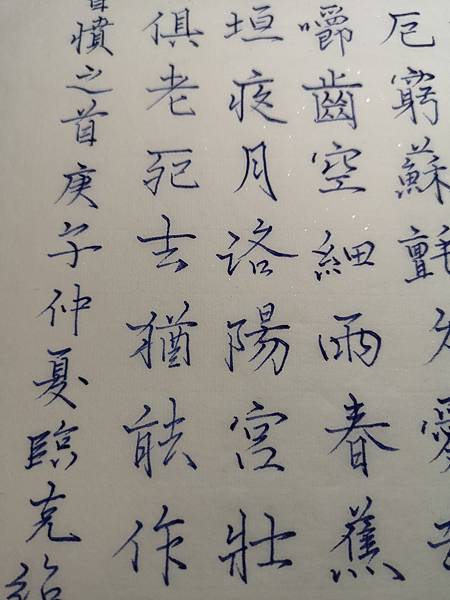 厄窮蘇氈
嚼齒空細雨春蕉
垣夜月洛陽宮壯
俱老死去猶能作
之首庚子仲夏臨克